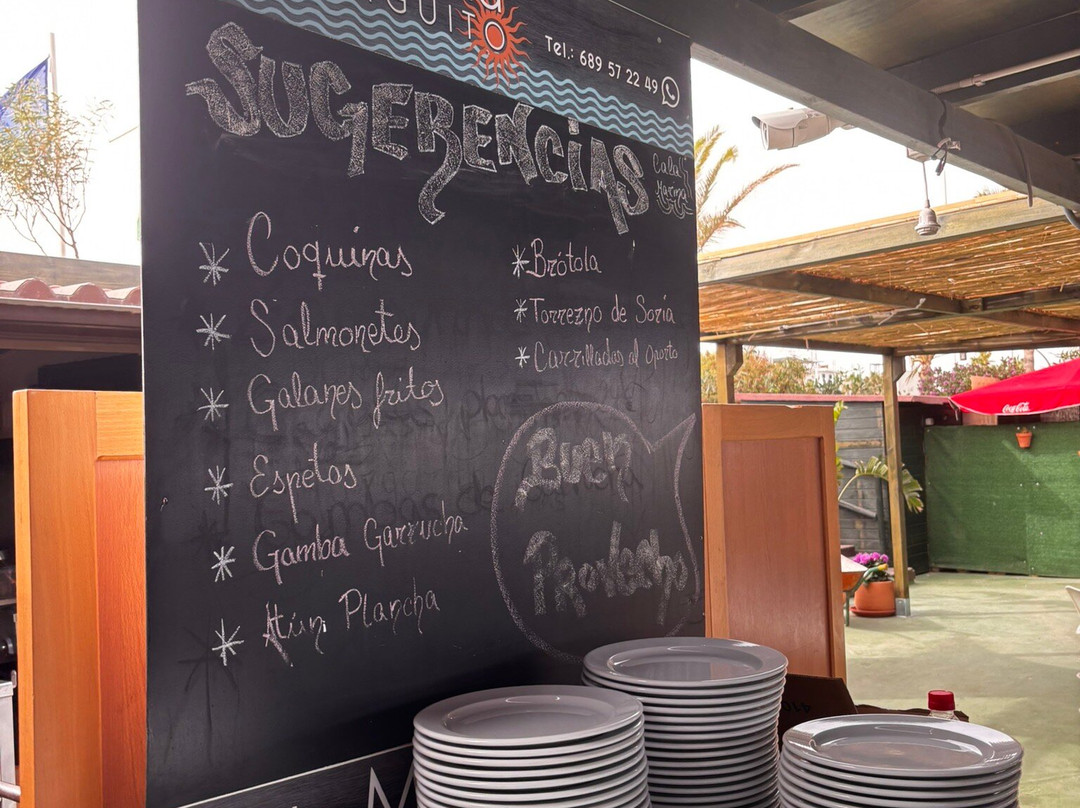 Tel.: 689 57 22 49
SUGERENCIAS
Cala
Marina
* Coquinas
* Salmonetes
* Galanes fritos
* Espetos
* Gamba Garrucha
* Atún Plancha
* Brótola
* Torrezno de Soria
* Carrilladas al oporto
Buen
Provecho
Coca-Cola